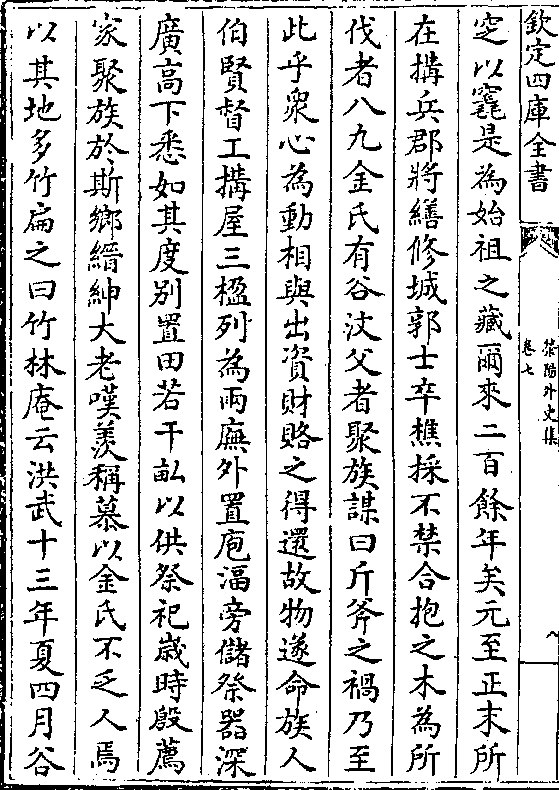 欽定四庫全書
滎陽外史集
卷七
八
穵以窀是為始祖之藏爾來二百餘年矣元至正末所
在搆兵郡將繕修城郭士卒樵採不禁合抱之木為所
伐者八九金氏有谷汶父者聚族謀曰斤斧之禍乃至
此乎衆心為動相與出資財賂之得還故物遂命族人
伯賢督工搆屋三楹列為兩廡外置庖湢旁儲祭器深
廣高下悉如其度别置田若干畆以供祭祀歲時殷薦
家聚族於斯鄉縉紳大老嘆羨稱慕以金氏不乏人焉
以其地多竹扁之曰竹林庵云洪武十三年夏四月谷